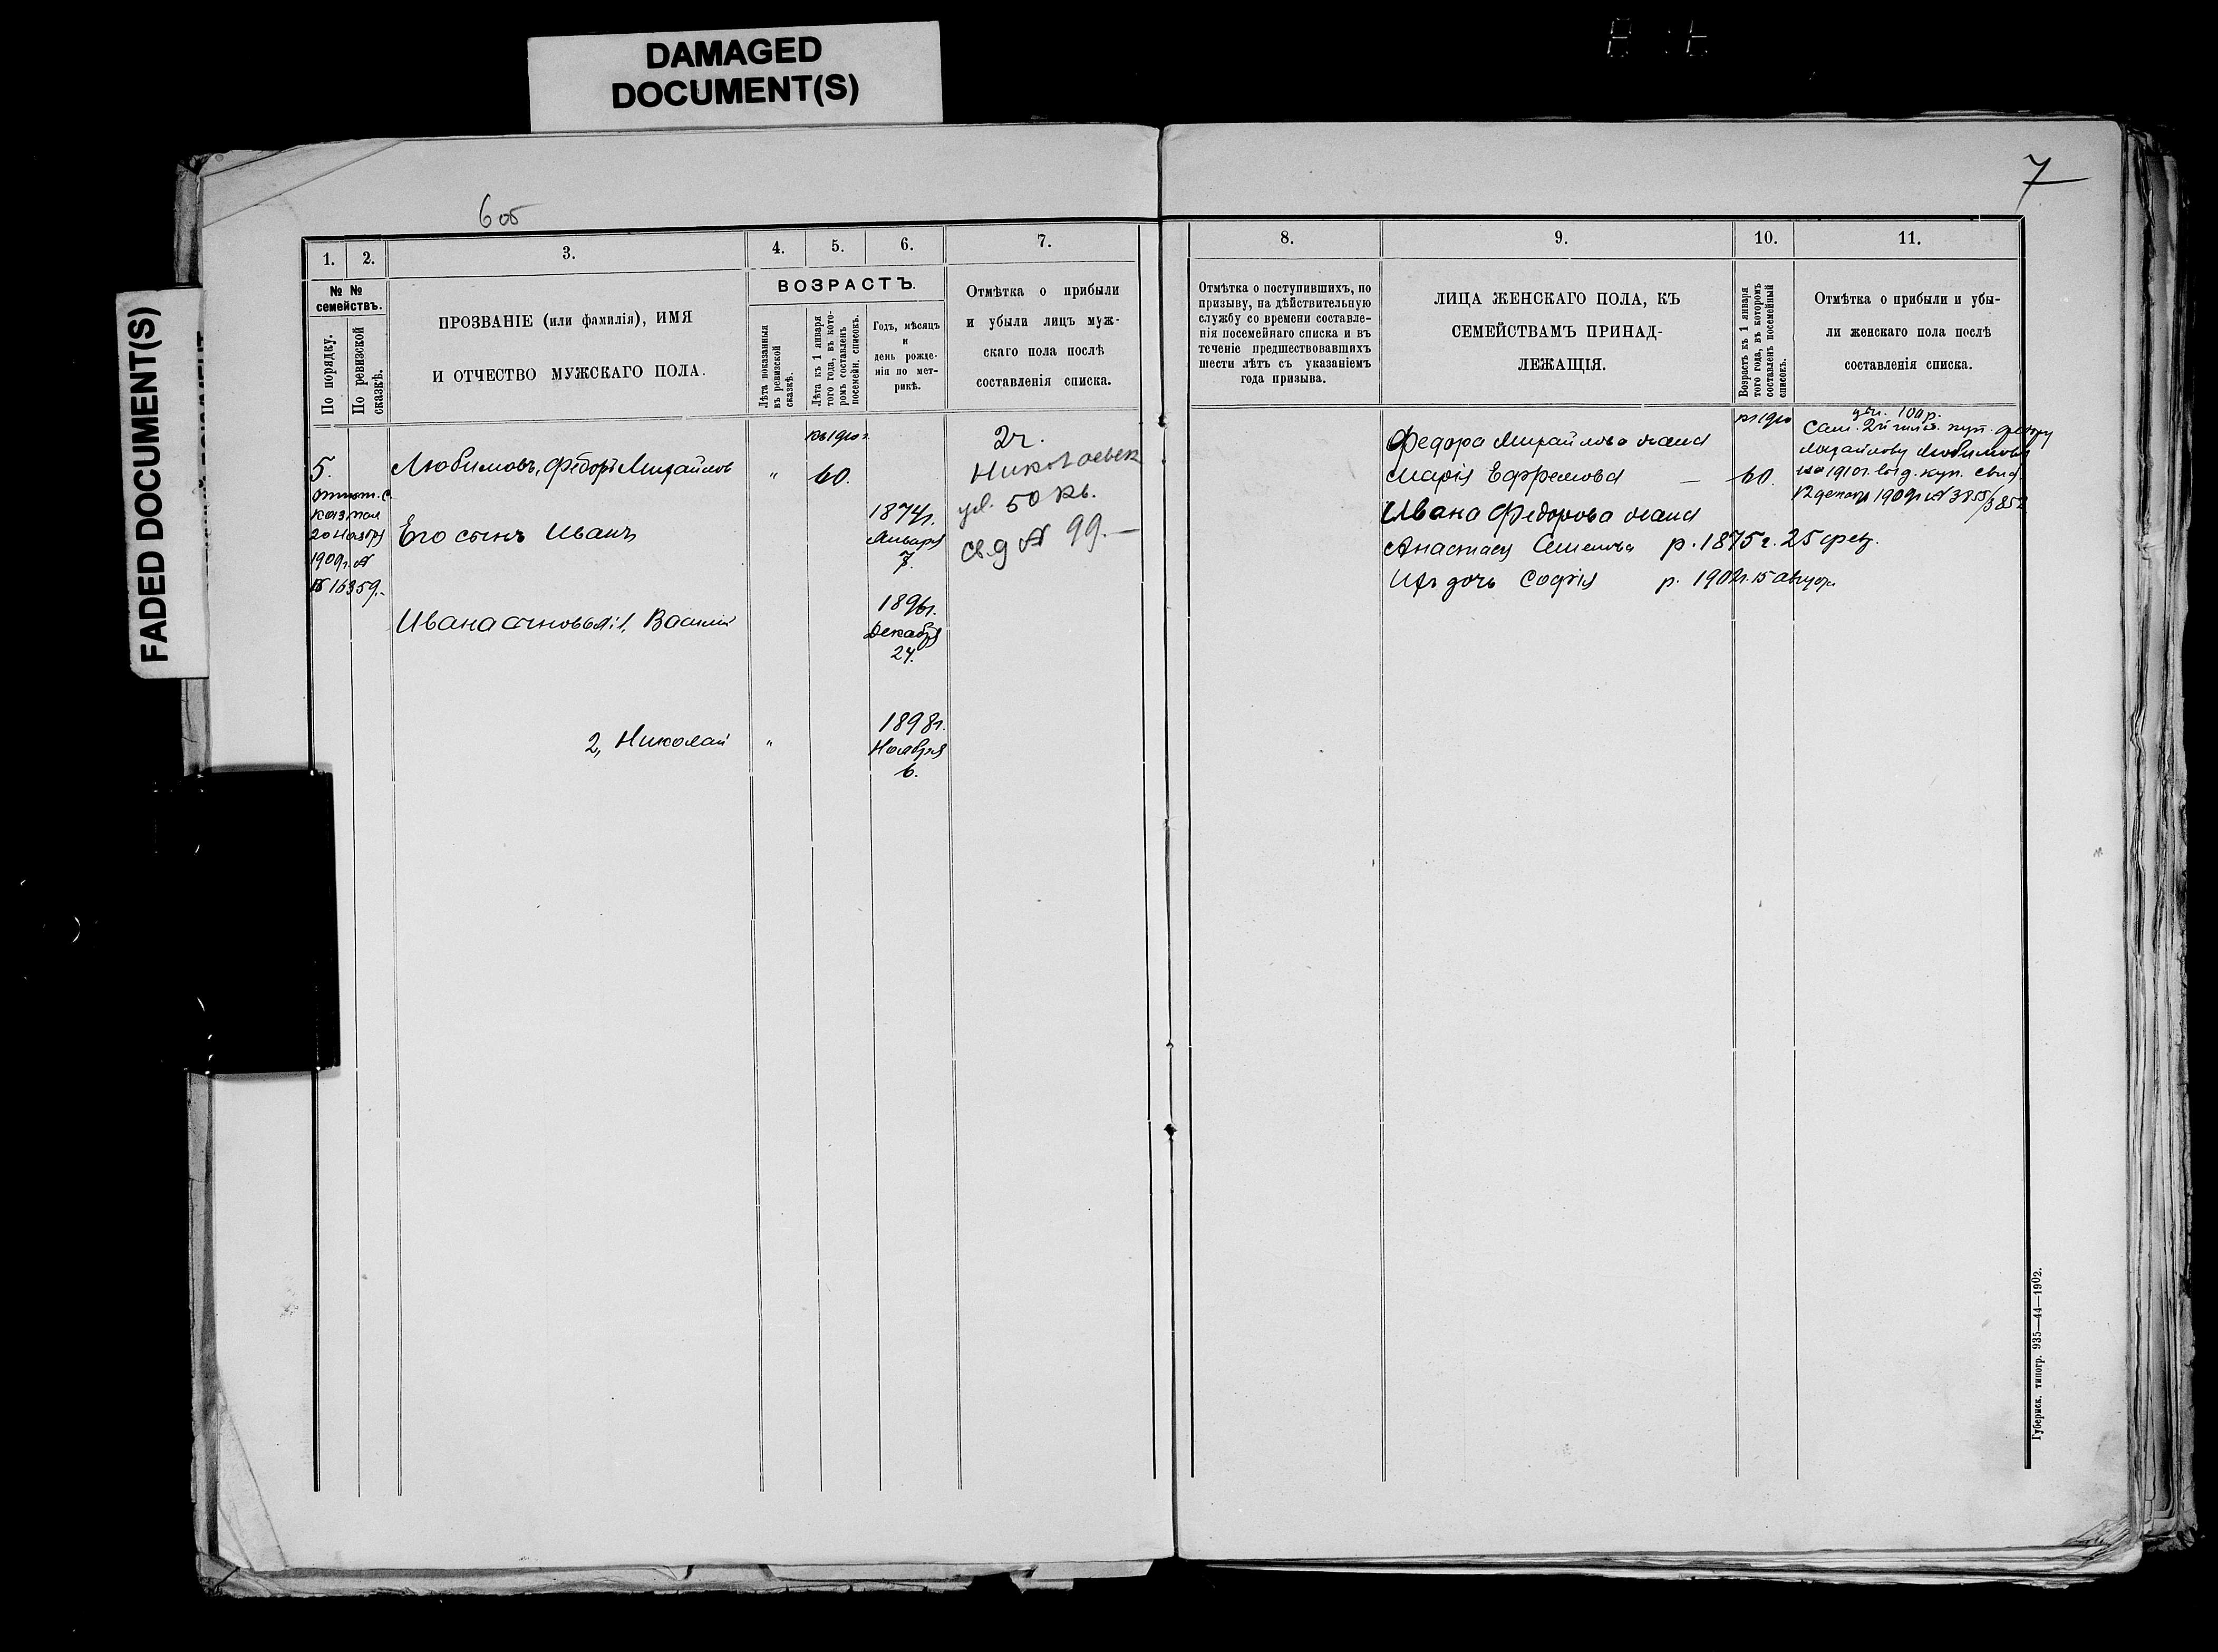 DAMAGED
DOCUMENT(S)
FADED DOCUMENT(S)
6 об
7
1.
2.
3.
4.
5.
6.
7.
8.
9.
10.
11.
№ №
семействъ.
По порядку.
По ревизской
сказкѣ.
ПРОЗВАНІЕ (или фамилія), ИМЯ
И ОТЧЕСТВО МУЖСКАГО ПОЛА.
ВОЗРАСТЪ.
Лѣта показанныя
въ ревизской
сказкѣ.
Лѣта къ 1 января
того года, въ кото-
ромъ составленъ
посемейн. списокъ.
Годъ, мѣсяцъ
и
день рожде-
нія по мет-
рикѣ.
Отмѣтка о прибыли
и убыли лицъ муж-
скаго пола послѣ
составленія списка.
Отмѣтка о поступившихъ, по
призыву, на дѣйствительную
службу со времени составле-
нія посемейнаго списка и въ
теченіе предшествовавшихъ
шести лѣтъ съ указаніемъ
года призыва.
ЛИЦА ЖЕНСКАГО ПОЛА, КЪ
СЕМЕЙСТВАМЪ ПРИНАД-
ЛЕЖАЩІЯ.
Возрастъ къ 1 января
того года, въ которомъ
составленъ посемейный
списокъ.
Отмѣтка о прибыли и убы-
ли женскаго пола послѣ
составленія списка.
5.
20 Ноября
1909г. №
16359.
Любимовъ, Федоръ Михайлов
"
къ 1910 г.
60.
Его сынъ Иванъ
1874г.
Января
7.
Ивана сыновья: 1, Василій
1896г.
Декабря
24.
2, Николай
"
1898г.
Ноября
6.
2 ч.
Николаевск
ул. 50 кв.
св. д № 99.—
Федора Михайлова жена
Марія Ефремова —
къ 1910
60.
Ивана Федорова жена
Анастасія р. 1875 г. 25 февр.
Ихъ дочь Софія р. 1902г. 15 августа
Сам. 2й гильд. куп. Федору
Михайлову Любимову
на 1910г. выд. куп. свид.
12 декабр 1909г № 3855/3852
Губернск. типогр. 935—44—1902.